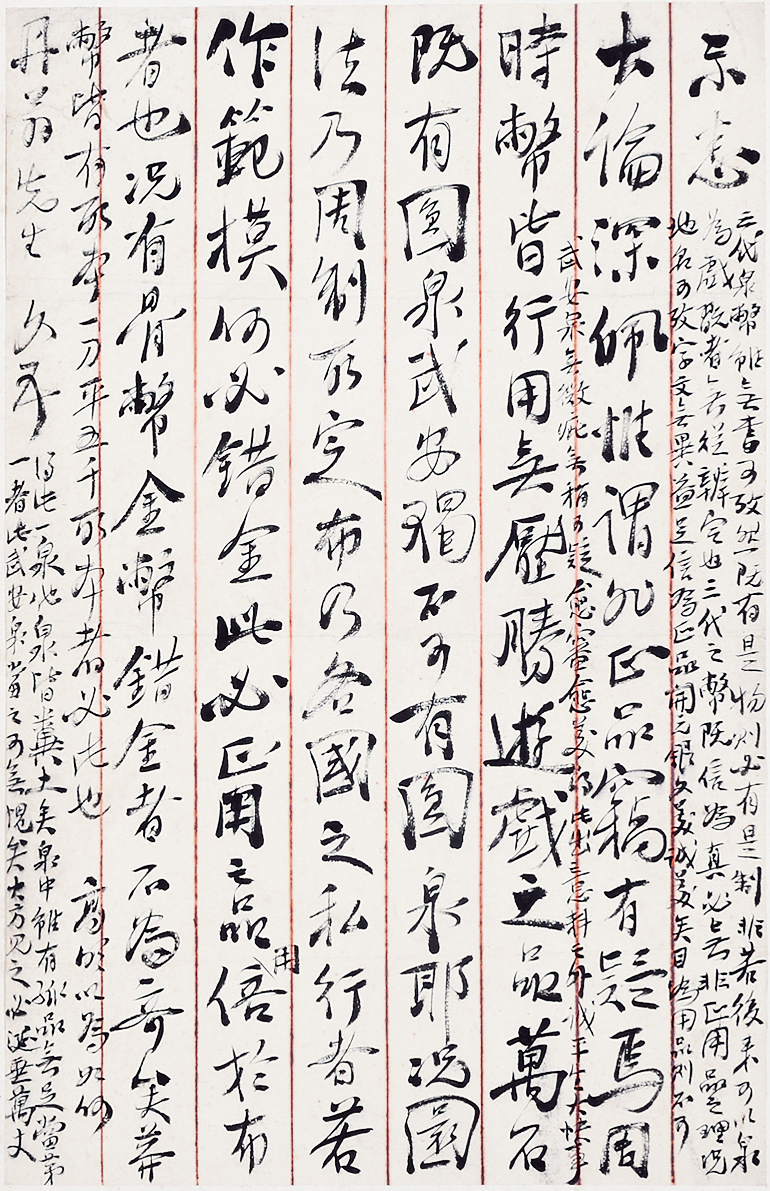 示悉
大論深佩惟謂非正品竊有疑焉周
時幣皆行用無壓勝遊戲之品萬石
既有圓泉武安獨不可有圓泉耶况圓
法乃周制所定布乃各國之私行者若
作範模何必錯金此必正用之品倍於布
用
者也况有骨幣金幣錯金者不為奇矣莽
幣皆有所本一刀平五千所本者必此也 高明以為如何
丹翁先生 久再
三代泉幣雖無書可考然既有是物則必有是制非若後來可以泉
為戲歟者無從辨定也三代之幣既信為真必無非正用品之理况
地名可考字文無異益足信為正品開元銀文美誠美矣目為用品則不可
武安泉無微疵無稍可疑愈審愈美得此出三意料之外我平生大快事
得此一泉他泉皆糞土矣泉中雖有孤品無足當第
一者此武安泉當之可無愧矣大方見之必涎垂萬丈